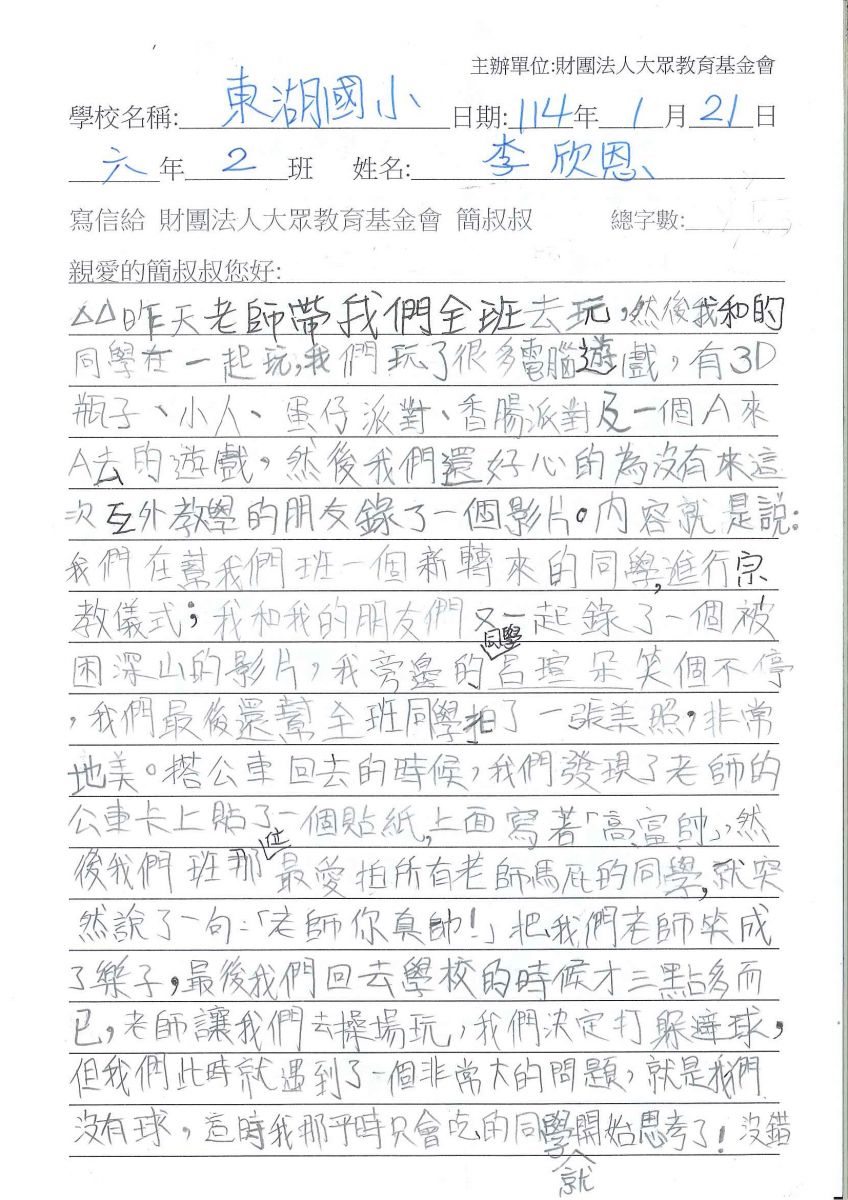 主辦單位:財團法人大眾教育基金會
學校名稱: 東湖國小 日期: 114 年 1 月 21 日
六 年 2 班 姓名: 李欣恩
寫信給 財團法人大眾教育基金會 簡叔叔 總字數:
親愛的簡叔叔您好:
△△昨天老師帶我們全班去玩,然後我和的
同學在一起玩,我們玩了很多電腦遊戲,有3D
瓶子、小人、蛋仔派對、香腸派對及一個A來
A去的遊戲,然後我們還好心的為沒有來這
次互外教學的朋友錄了一個影片。內容就是說:
我們在幫我們班一個新轉來的同學,進行宗
教儀式;我和我的朋友們又一起錄了一個被
困深山的影片,我旁邊的同學呂瑄朵笑個不停
,我們最後還幫全班同學拍了一張美照,非常
地美。搭公車回去的時候,我們發現了老師的
公車卡上貼了一個貼紙,上面寫著「高富帥」,然
後我們班那位最愛拍所有老師馬屁的同學,就突
然說了一句:「老師你真帥!」把我們老師笑成
了樂子,最後我們回去學校的時候才三點多而
已,老師讓我們去操場玩,我們決定打躲避球,
但我們此時就遇到了一個非常大的問題,就是我們
沒有球,這時我那平時只會吃的同學就開始思考了!沒錯